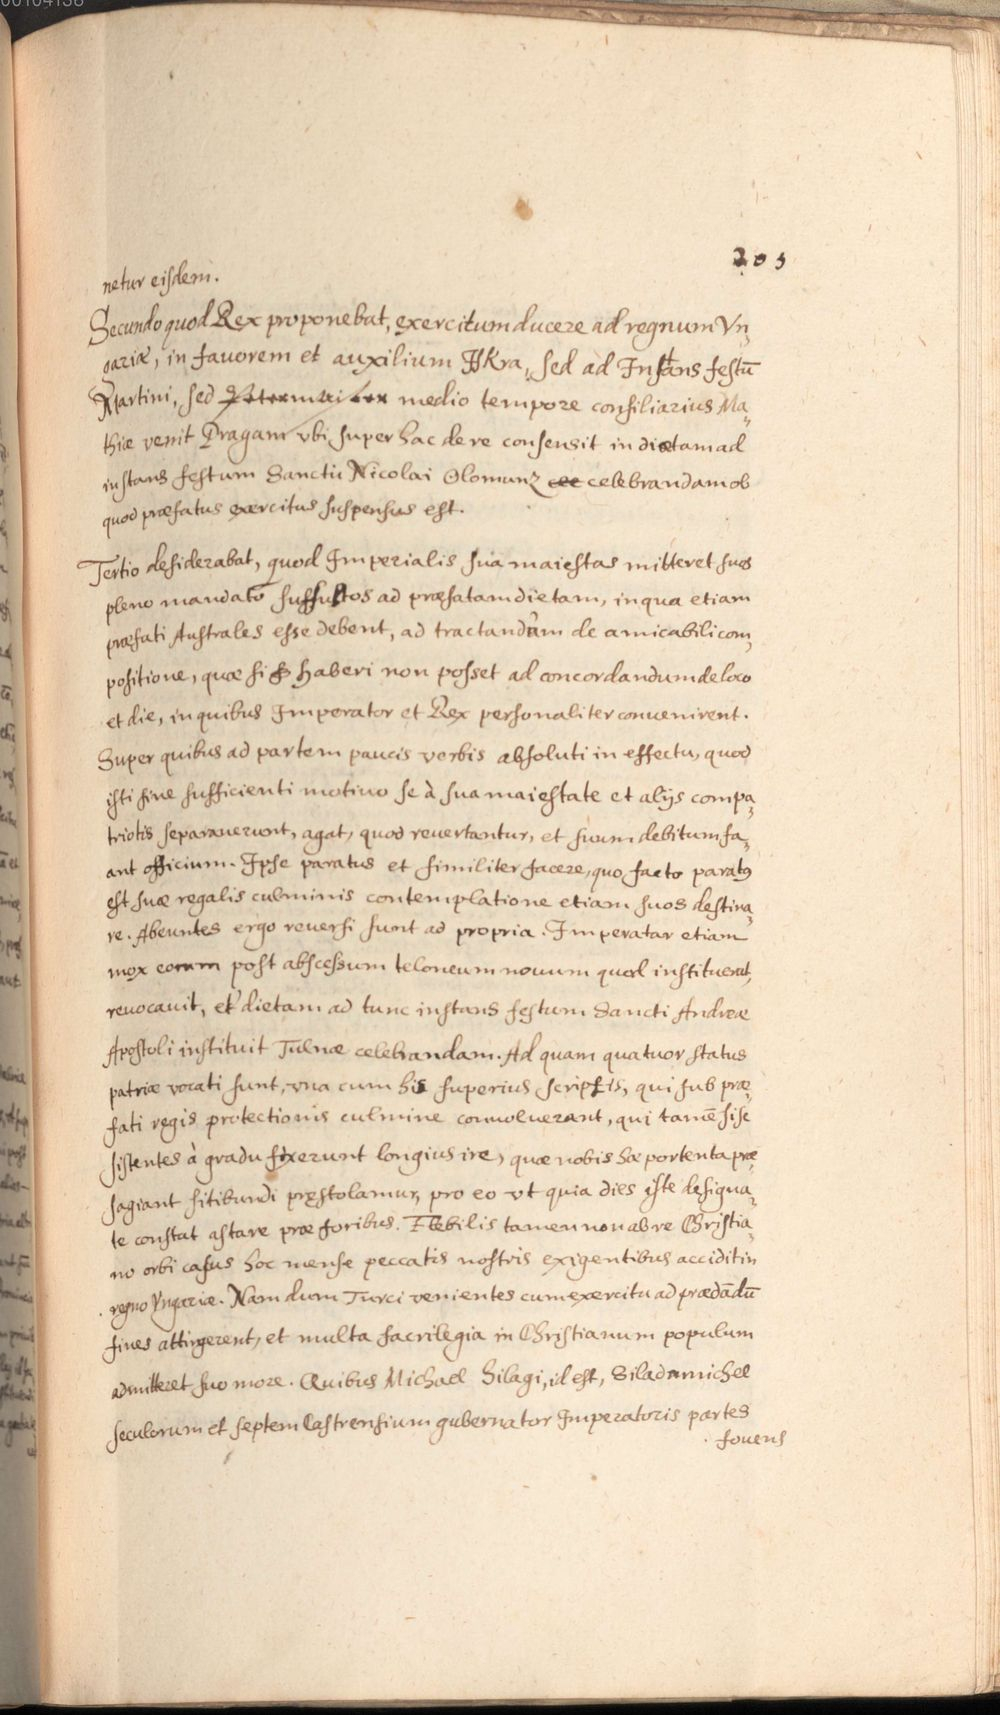 00104136
203
netur eisdem.
Secundo quod Rex proponebat, exercitum ducere ad regnum Vn,
gariæ, in fauorem et auxilium Iskra, sed ad Instans festū
Martini, sed medio tempore consiliarius Ma,
thiæ venit Pragam vbi super hac de re consensit in dietam ad
instans festum Sanctii Nicolai Olomunz celebrandam ob
quod præfatus exercitus suspensus est.
Tertio desiderabat, quod Imperialis sua maiestas mitteret suos
pleno mandato suffultos ad præfatam dietam, in qua etiam
præfati Australes esse debent, ad tractandam de amicabili com,
positione, quæ si haberi non posset ad concordandum de loco
et die, in quibus Imperator et Rex personaliter conuenirent.
Super quibus ad partem paucis verbis absoluti in effectu, quod
isti sine sufficienti motiuo se à sua maiestate et alijs compa,
triotis separauerunt, agat, quod reuertantur, et suum debitum fa,
ant officium. Ipse paratus et similiter facere, quo facto paratus
est suæ regalis culminis contemplatione etiam suos destina,
re. Abeuntes ergo reuersi sunt ad propria. Imperatar etiam
mox eorum post abscessum teloneum nouum quod instituerat,
reuocauit, et dietam ad tunc instans festum Sancti Andreæ
Apostoli instituit Tulnæ celebrandam. Ad quam quatuor status
patriæ vocati sunt, vna cum his superius scriptis, qui sub præ,
fati regis protectionis culmine conuoluerant, qui tamē sise
sistentes à gradu fixerunt longius ire, quæ nobis hæ portenta præ,
sagiant sitibundi pręstolamur, pro eo vt quia dies iste designa,
te constat astare præ foribus. Flebilis tamen non ab re Christia,
no orbi casus hoc mense peccatis nostris exigentibus accidit in
regno Vngariæ. Nam dum Turci venientes cum exercitu ad prædādū
fines attingerent, et multa sacrilegia in Christianum populum
admitteret suo more. Quibus Michael Hilagi, id est, Siladamichel
seculorum et septem Castrensium gubernator Imperatoris partes
fouens